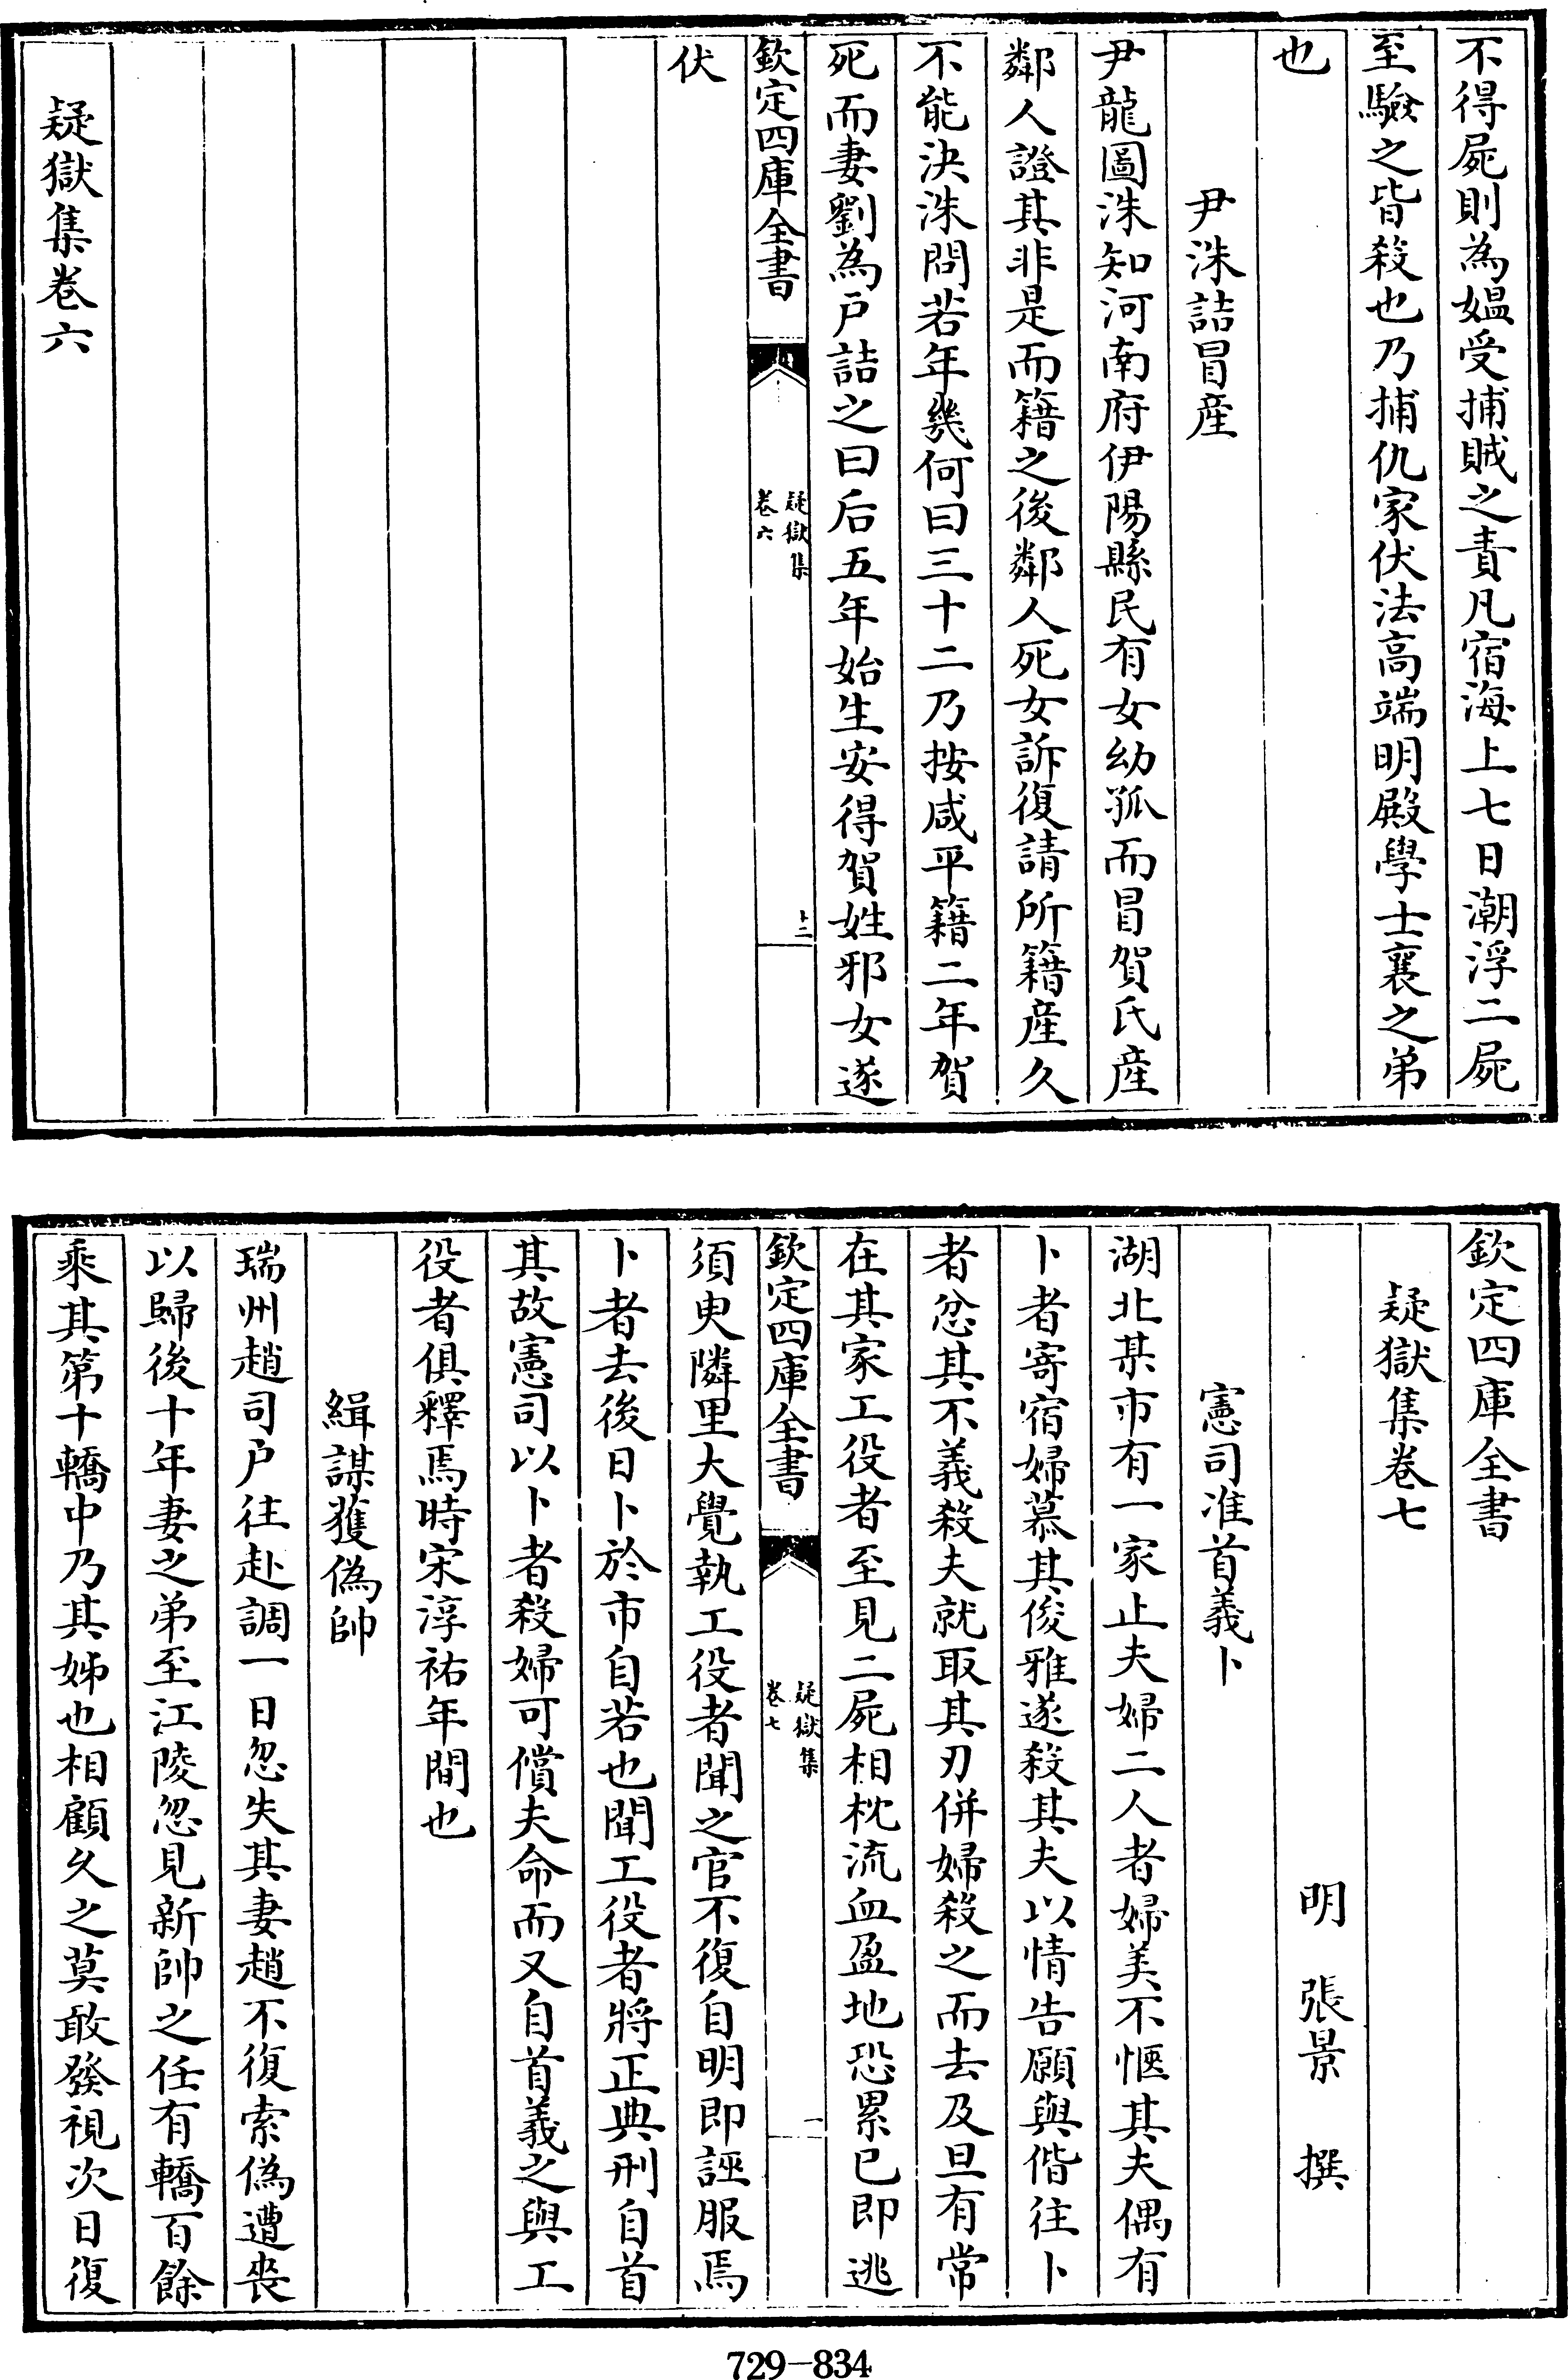 不得屍則為媪受捕賊之責凡宿海上七日潮浮二屍
至驗之皆殺也乃捕仇家伏法高端明殿學士襄之弟
也
尹洙詰冒産
尹龍圖洙知河南府伊陽縣民有女幼孤而冒賀氏産
鄰人證其非是而籍之後鄰人死女訴復請所籍産久
不能決洙問若年幾何曰三十二乃按咸平籍二年賀
死而妻劉為户詰之曰后五年始生安得賀姓邪女遂
欽定四庫全書
疑獄集
卷六
十二
伏
疑獄集卷六
欽定四庫全書
疑獄集卷七
明 張景 撰
憲司准首義卜
湖北某市有一家止夫婦二人者婦美不愜其夫偶有
卜者寄宿婦慕其俊雅遂殺其夫以情告願與偕往卜
者忿其不義殺夫就取其刃併婦殺之而去及旦有常
在其家工役者至見二屍相枕流血盈地恐累已即逃
欽定四庫全書
疑獄集
卷七
一
須臾隣里大覺執工役者聞之官不復自明即誣服焉
卜者去後日卜於市自若也聞工役者將正典刑自首
其故憲司以卜者殺婦可償夫命而又自首義之與工
役者俱釋焉時宋淳祐年間也
緝謀獲偽帥
瑞州趙司户往赴調一日忽失其妻趙不復索偽遭喪
以歸後十年妻之弟至江陵忽見新帥之任有轎百餘
乘其第十轎中乃其姊也相顧久之莫敢發視次日復
729—834